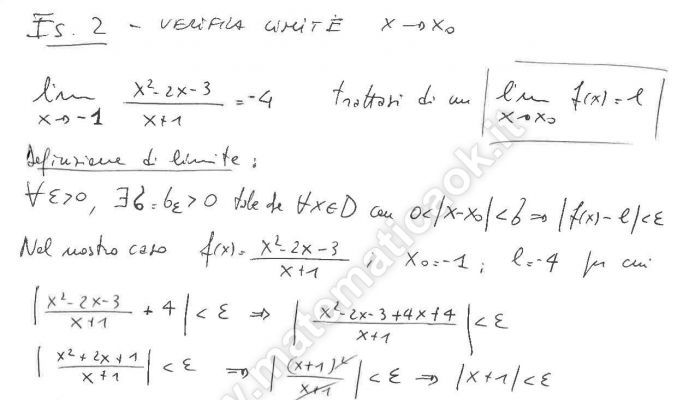 Es. 2 - VERIFICA LIMITE x→x₀
lim x→-1 (x²-2x-3)/(x+1) = -4 trattasi di un lim x→x₀ f(x) = l
Definizione di limite:
∀ε>0, ∃δ=δε>0 tale che ∀x∈D con 0<|x-x₀|<δ ⇒ |f(x)-l|<ε
Nel nostro caso f(x)= (x²-2x-3)/(x+1) ; x₀=-1; l=-4 per cui
|(x²-2x-3)/(x+1) + 4| < ε ⇒ |(x²-2x-3+4x+4)/(x+1)| < ε
|(x²+2x+1)/(x+1)| < ε ⇒ |(x+1)²/(x+1)| < ε ⇒ |x+1| < ε
www.matematicaok.it